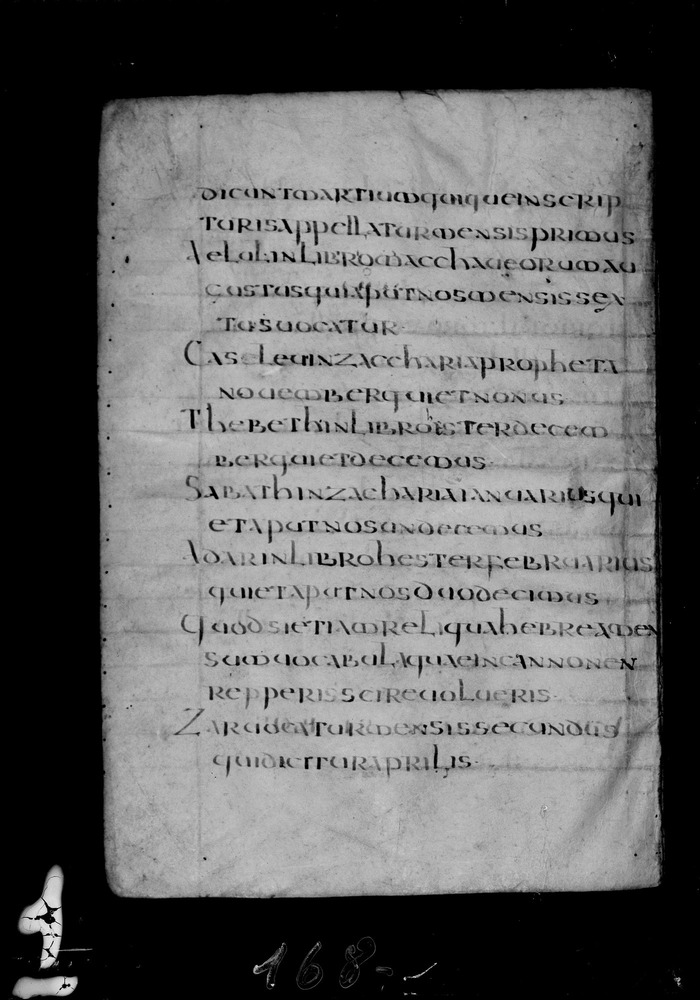 dicunt martium qui que in scrip
turis appellatur mensis primus
Aelul in libro macchaueorum au
custus qui aput nos mensis sex
tus uocatur
Casleu in zaccharia propheta
nouember qui et nonus
Thebeth in libro ister decem
ber qui et decemus
Sabath in zacharia ianuarius qui
et aput nos undecemus
Adar in libro hester februarius
qui et aput nos duodecimus
Quod si etiam reliqua hebrea men
sum uocabula quae in cannone n
repperis scire uolueris
Zar uocatur mensis secundus
qui dicitur aprilis
168